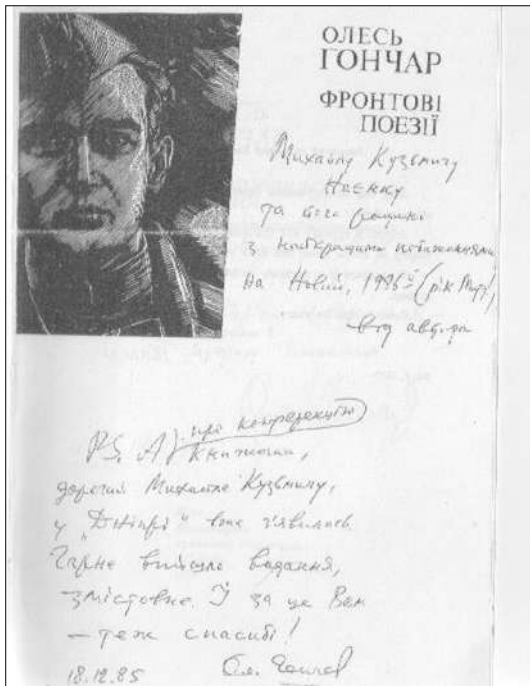 ОЛЕСЬ
ГОНЧАР
ФРОНТОВІ
ПОЕЗІЇ
Михайлу Кузьмичу
Наєнку
та його родині
з найкращими побажаннями
на Новий, 1986й (рік Миру),
— від автора
P.S. А про конференцію
книжечка,
дорогий Михайле Кузьмичу,
у „Дніпрі“ вже з'явилась.
Гарне вийшло видання,
змістовне. І за це Вам
— теж спасибі!
18.12.85 Ол. Гончар